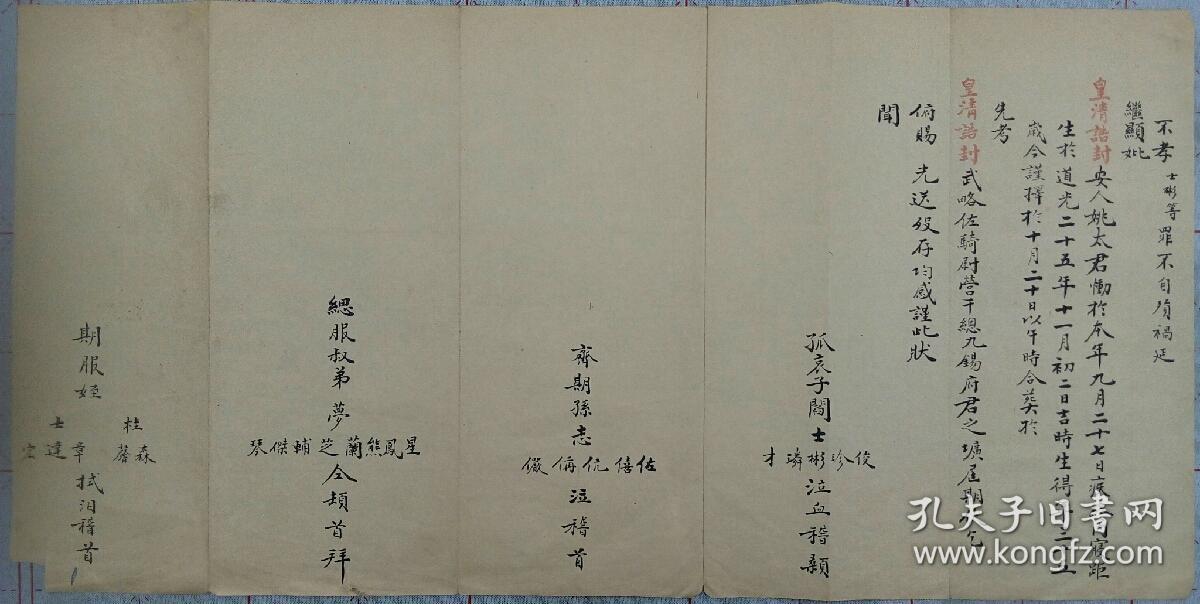 不孝士彬等罪不自殞禍延
繼顯妣
皇清誥封安人姚太君慟於本年九月二十七日疾寢距
生於道光二十五年十一月初二日吉時生得年
歲今謹擇於十月二十日以午時合葬於
先考
皇清誥封武略佐騎尉營千總九錫府君之壙屆期
俯賜 光送歿存均感謹此狀
聞
孤哀子閻士俊珍彬璘才泣血稽顙
齊期孫志佐僖伉侢儼泣稽首
緦服叔弟夢星鳳熊蘭芝輔傑琴仝頓首拜
期服姪桂森士達章拭泪稽首
孔夫子旧书网
www.kongfz.com